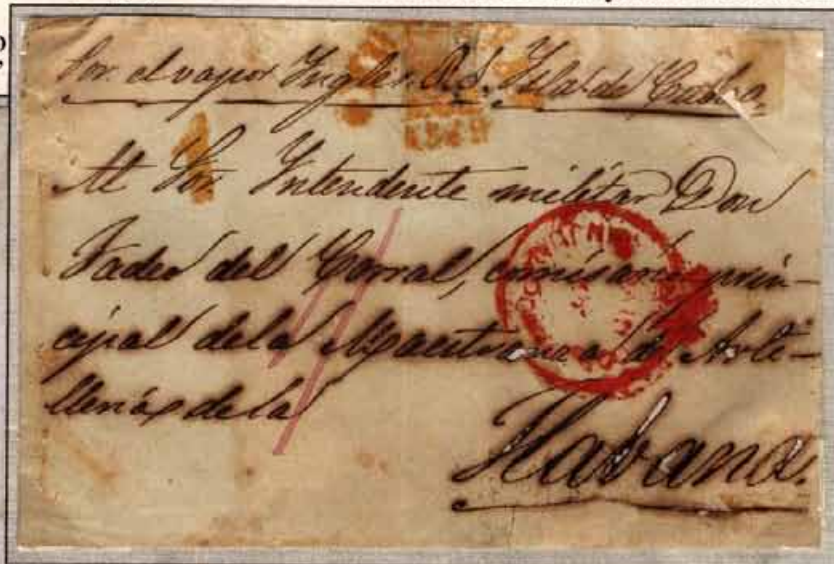 Por el vapor Ingles. Isla de Cuba.
Al Sor Intendente militar Don
Tadeo del Corral, comisario prin-
cipal de la Maestranza de Arti-
lleria de la
Habana.